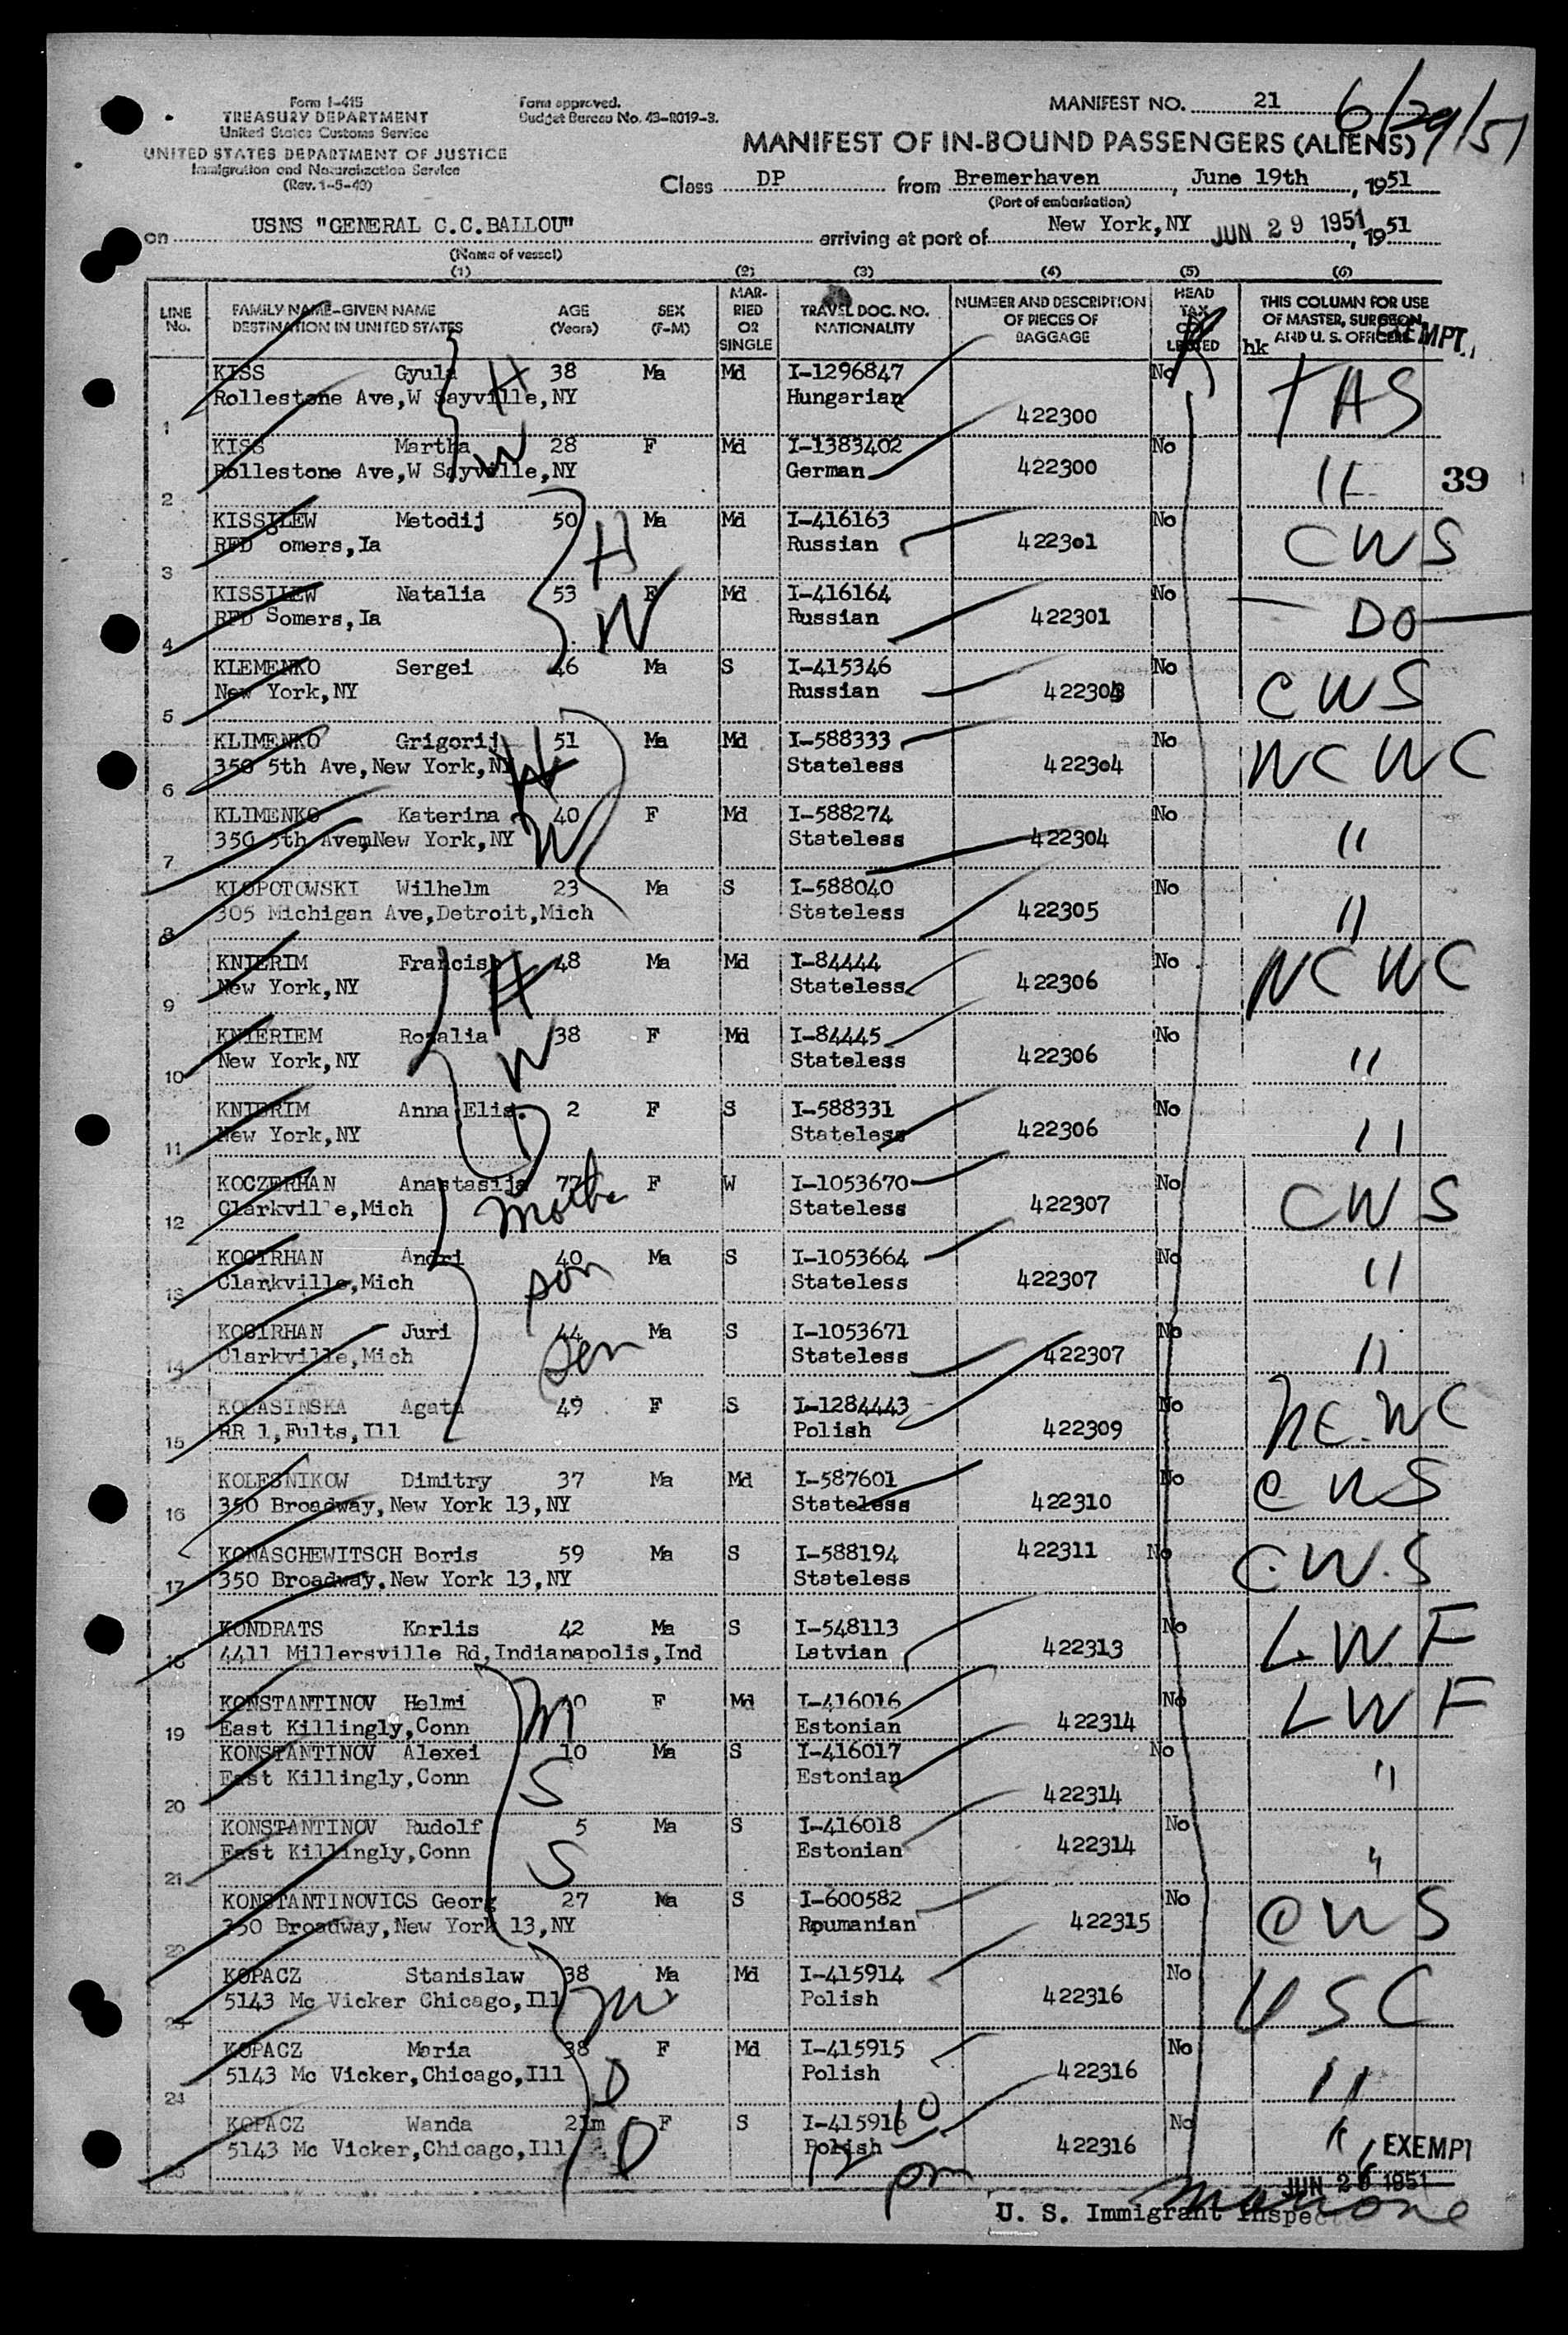 Form I-415
TREASURY DEPARTMENT
United States Customs Service
UNITED STATES DEPARTMENT OF JUSTICE
Immigration and Naturalization Service
(Rev. 1-5-49)
Form approved.
Budget Bureau No. 43-R019-3.
MANIFEST NO. 21
6/29/51
MANIFEST OF IN-BOUND PASSENGERS (ALIENS)
Class DP from Bremerhaven, June 19th, 1951
(Port of embarkation)
on USNS "GENERAL C.C.BALLOU" arriving at port of New York,NY JUN 29 1951, 1951
(Name of vessel)
(1) (2) (3) (4) (5) (6)
LINE No. FAMILY NAME-GIVEN NAME DESTINATION IN UNITED STATES AGE (Years) SEX (F-M) MARRIED OR SINGLE TRAVEL DOC. NO. NATIONALITY NUMBER AND DESCRIPTION OF PIECES OF BAGGAGE HEAD TAX COLLECTED THIS COLUMN FOR USE OF MASTER, SURGEON, AND U. S. OFFICERS
EXEMPT
hk
KISS Gyula H 38 Ma Md I-1296847 No TAS
Rollestone Ave,W Sayville,NY Hungarian
1 422300
KISS Martha W 28 F Md I-1383402 No
Rollestone Ave,W Sayville,NY German 422300 "
2
39
KISSILEW Metodij 50 H Ma Md I-416163 No CWS
RFD omers,Ia Russian 422301
3
KISSILEW Natalia 53 W F Md I-416164 No
RFD Somers,Ia Russian 422301 DO
4
KLEMENKO Sergei 46 Ma S I-415346 No CWS
New York,NY Russian 422303
5
KLIMENKO Grigorij H 51 Ma Md I-588333 No NCWC
350 5th Ave,New York,NY Stateless 422304
6
KLIMENKO Katerina W 40 F Md I-588274 No
350 5th Avem,New York,NY Stateless 422304 "
7
KLOPOTOWSKI Wilhelm 23 Ma S I-588040 No
305 Michigan Ave,Detroit,Mich Stateless 422305 "
8
KNIERIM Francis H 48 Ma Md I-84444 No NCWC
New York,NY Stateless 422306
9
KNIERIEM Rozalia W 38 F Md I-84445 No
New York,NY Stateless 422306 "
10
KNIERIM Anna Elis. D 2 F S I-588331 No
New York,NY Stateless 422306 "
11
KOCZERHAN Anastasija 77 F W I-1053670 No CWS
Clarkville,Mich Mother Stateless 422307
12
KOCIRHAN Andri 40 Ma S I-1053664 No
Clarkville,Mich son Stateless 422307 "
13
KOCIRHAN Juri 44 Ma S I-1053671 No
Clarkville,Mich son Stateless 422307 "
14
KOLASINSKA Agata 49 F S I-1284443 No NC.WC
RR 1,Fults,Ill Polish 422309
15
KOLESNIKOW Dimitry 37 Ma Md I-587601 No CWS
350 Broadway,New York 13,NY Stateless 422310
16
KONASCHEWITSCH Boris 59 Ma S I-588194 422311 No C.W.S
350 Broadway,New York 13,NY Stateless
17
KONDRATS Karlis 42 Ma S I-548113 No L.W.F
4411 Millersville Rd,Indianapolis,Ind Latvian 422313
18
KONSTANTINOV Helmi M 40 F Md I-416016 No LWF
East Killingly,Conn Estonian 422314
19
KONSTANTINOV Alexei 10 Ma S I-416017 No
East Killingly,Conn S Estonian 422314 "
20
KONSTANTINOV Rudolf 5 Ma S I-416018 No
East Killingly,Conn S Estonian 422314 "
21
KONSTANTINOVICS Georg 27 Ma S I-600582 No CWS
350 Broadway,New York 13,NY Roumanian 422315
22
KOPACZ Stanislaw 38 Ma Md I-415914 No USC
5143 Mc Vicker Chicago,Ill Polish 422316
23
KOPACZ Maria 38 F Md I-415915 No
5143 Mc Vicker,Chicago,Ill D Polish 422316 "
24
KOPACZ Wanda 21m F S I-415916 No
5143 Mc Vicker,Chicago,Ill D Polish 422316 "
25
EXEMPT
JUN 29 1951
U. S. Immigrant Inspector